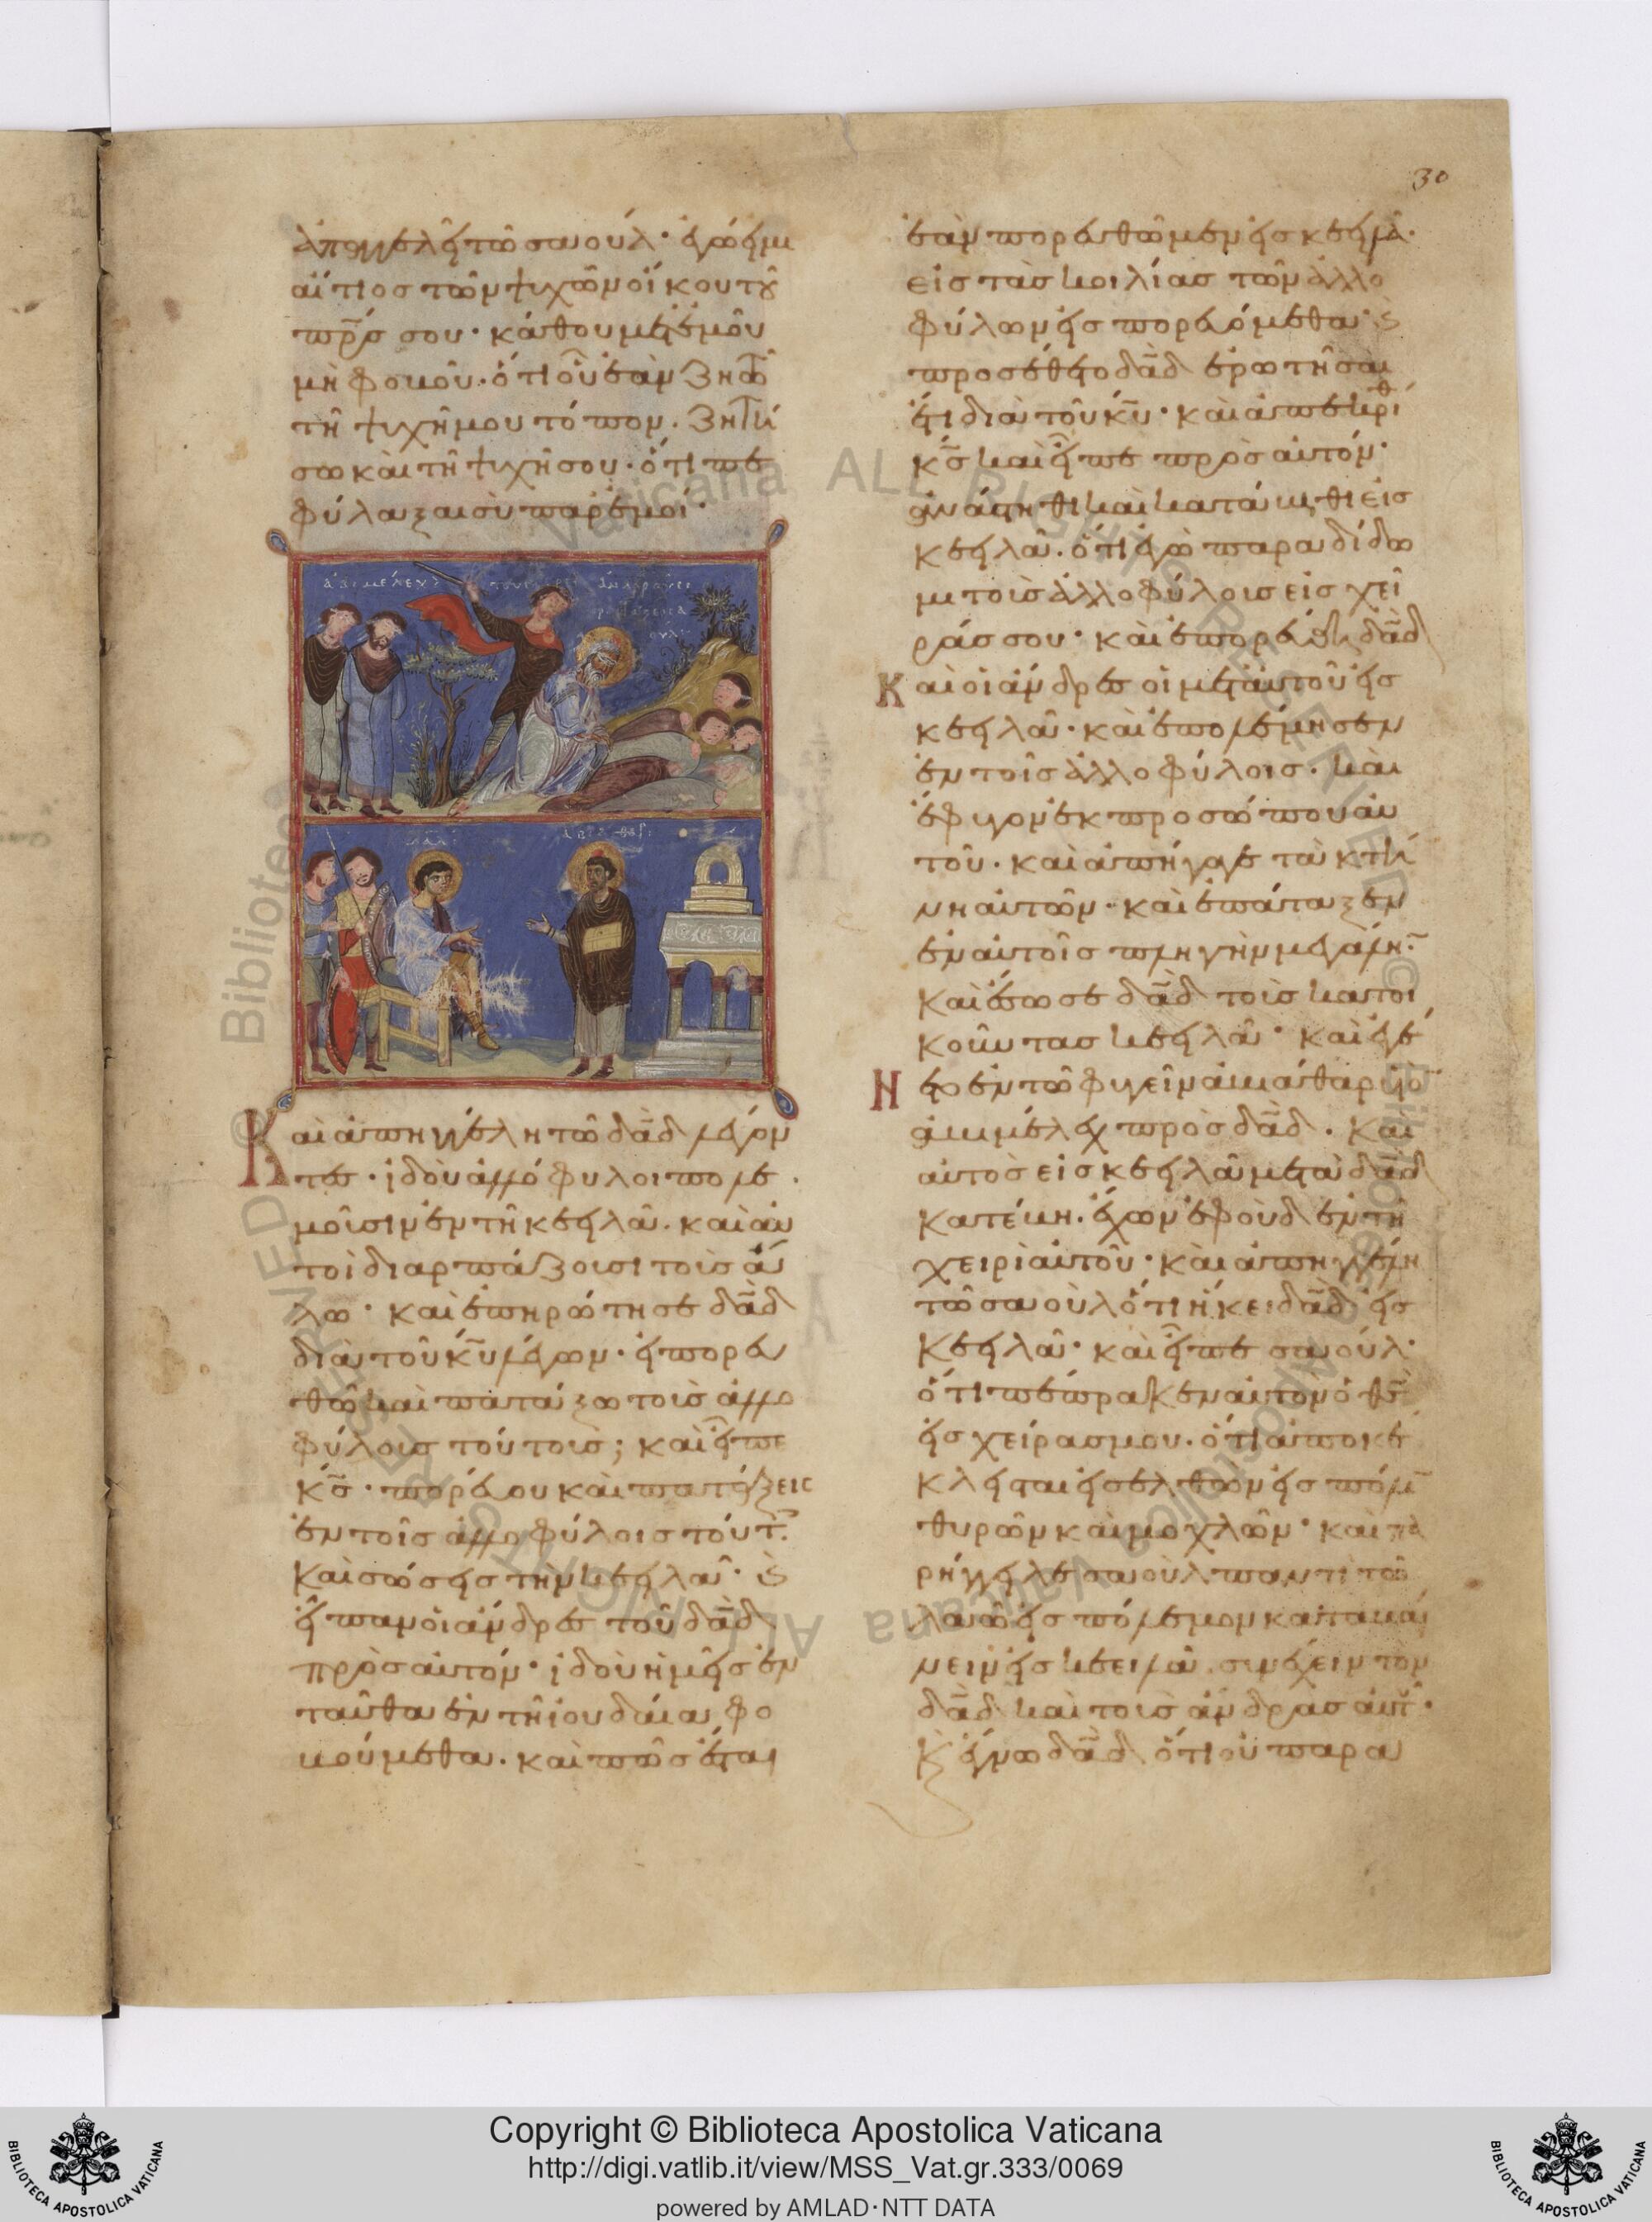 30
ἀπαγγελεῖ τῶ σαούλ· ἐγώ εἰμι
αἴτιος τῶν ψυχῶν οἴκου τοῦ
πρ̅σ σου· κάθου μετ' ἐμοῦ
μὴ φοβοῦ· ὅτι οὗ ἐὰν ζητῶ
τῆ ψυχῆ μου τόπον. ζητή
σω καὶ τῆ ψυχῆ σου· ὅτι πε
φύλαξαι σὺ παρ' ἐμοί·
Καὶ ἀπηγγέλη τῶ δα̅δ λέγον
τες· ἰδοὺ ἀλλόφυλοι πολε
μοῦσιν ἐν τῆ κεειλά. καὶ αὐ
τοὶ διαρπάζουσι τοὺς ἅ
λω· καὶ ἐπηρώτησε δα̅δ
διὰ τοῦ κ̅υ λέγων· εἰ πορευ
θῶ καὶ πατάξω τοὺς ἀλλο
φύλους τούτους; καὶ εἶπε
κ̅σ· πορεύου καὶ πατάξεις
ἐν τοῖς ἀλλοφύλοις τούτ
καὶ σώσεις τὴν κεειλά· ϗ
εἶπαν οἱ ἄνδρες τοῦ δα̅δ
πρὸς αὐτόν· ἰδοὺ ἡμεῖς ἐν
ταῦθα ἐν τῆ ἰουδαία φο
βούμεθα. καὶ πῶς ἔσται
ἐὰν πορευθῶμεν εἰς κεειλὰ·
εἰς τὰς κοιλίας τῶν ἀλλο
φύλων εἰς πορευόμεθα· ϗ
προσέθετο δα̅δ ἐρωτῆσαι
ἔτι διὰ τοῦ κ̅υ· καὶ ἀπεκρίθ
κ̅σ καὶ εἶπε πρὸς αὐτόν·
ἀνάστηθι καὶ κατάβηθι εἰς
κεειλά. ὅτι ἐγὼ παραδίδω
μι τοὺς ἀλλοφύλους εἰς χεῖ
ράς σου· καὶ ἐπορεύθη δα̅δ
Καὶ οἱ ἄνδρες οἱ μετ' αὐτοῦ εἰς
κεειλά· καὶ ἐπολέμησεν
ἐν τοῖς ἀλλοφύλοις. καὶ
ἔφυγον ἐκ προσώπου αὐ
τοῦ. καὶ ἀπήγαγε τὰ κτή
νη αὐτῶν· καὶ ἐπάταξεν
ἐν αὐτοῖς πληγὴν μεγάλην·
καὶ ἔσωσε δα̅δ τοὺς κατοι
κοῦντας κεειλά· καὶ ἐγέ
Νετο ἐν τῶ φυγεῖν ἀβιάθαρ υἱὸ
ἀβιμέλεχ πρὸς δα̅δ. καὶ
αὐτὸς εἰς κεειλὰ μετὰ δα̅δ
κατέβη. ἔχων ἐφοὺδ ἐν τῆ
χειρὶ αὐτοῦ· καὶ ἀπηγγέλη
τῶ σαοὺλ ὅτι ἥκει δα̅δ εἰς
κεειλά· καὶ εἶπε σαούλ·
ὅτι πέπρακεν αὐτὸν ὁ θ̅σ
εἰς χεῖρας μου. ὅτι ἀποκέ
κλεισται εἰσελθὼν εἰς πόλιν
θυρῶν καὶ μοχλῶν· καὶ πα
ρήγγειλε σαοὺλ παντὶ τῶ
λαῶ εἰς πόλεμον καταβαί
νειν εἰς κεειλά. συνέχειν τὸν
δα̅δ καὶ τοὺς ἄνδρας αὐτοῦ·
κ ἔγνω δα̅δ ὅτι οὐ παρα
Copyright © Biblioteca Apostolica Vaticana
http://digi.vatlib.it/view/MSS_Vat.gr.333/0069
powered by AMLAD·NTT DATA
BIBLIOTECA APOSTOLICA VATICANA
BIBLIOTECA APOSTOLICA VATICANA